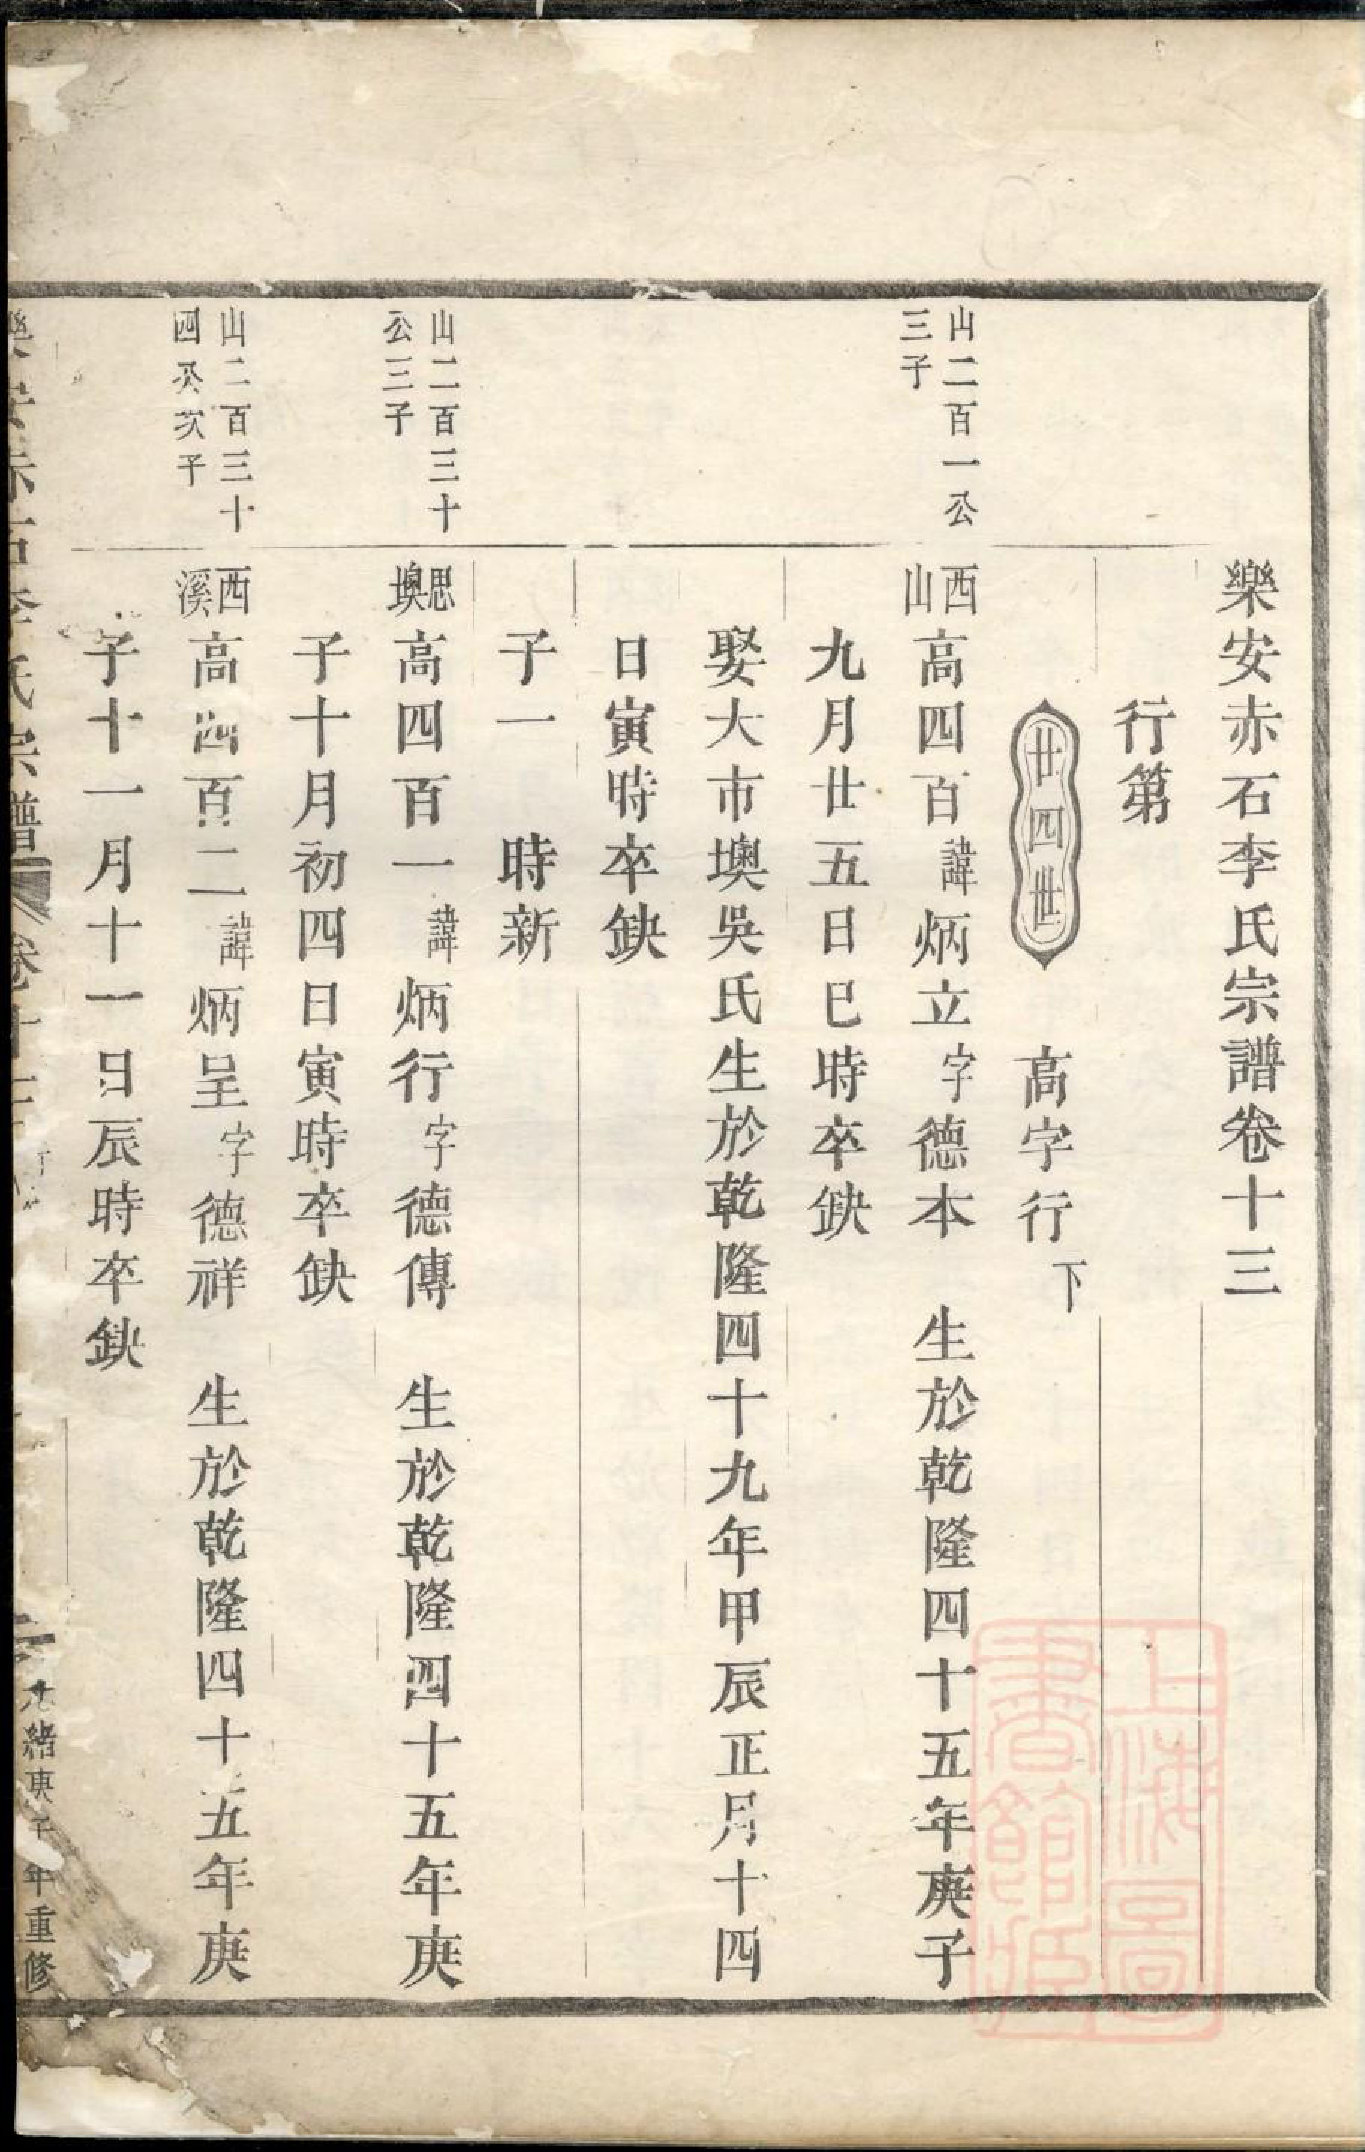 樂安赤石李氏宗譜卷十三
行第
廿四世 高字行下
山二百一公
三子
西山高四百諱炳立字德本 生於乾隆四十五年庚子
九月廿五日巳時卒缺
娶大市墺吳氏生於乾隆四十九年甲辰正月十四
日寅時卒缺
子一 時新
山二百三十
公三子
思墺高四百一諱炳行字德傳 生於乾隆四十五年庚
子十月初四日寅時卒缺
山二百三十
四公次子
西溪高四百二諱炳呈字德祥 生於乾隆四十五年庚
子十一月十一日辰時卒缺
樂安赤石李氏宗譜 卷十三 光緒庚子年重修
上海圖
書館藏